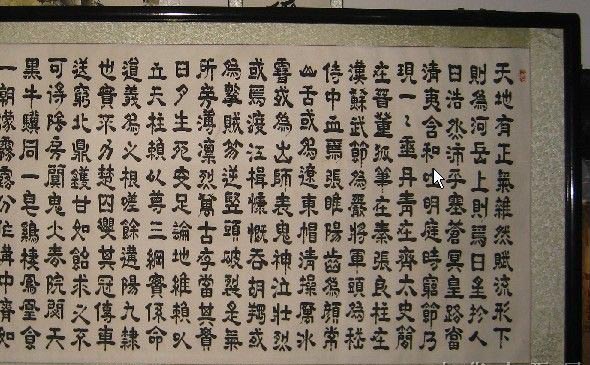 天地有正氣雜然賦流形下
則為河岳上則為日星於人
曰浩然沛乎塞蒼冥皇路當
清夷含和吐明庭時窮節乃
現一一垂丹青在齊太史簡
在晉董狐筆在秦張良椎在
漢蘇武節為嚴將軍頭為嵇
侍中血為張睢陽齒為顏常
山舌或為遼東帽清操厲冰
雪或為出師表鬼神泣壯烈
或為渡江楫慷慨吞胡羯或
為擊賊笏逆豎頭破裂是氣
所旁薄凜烈萬古存當其貫
日月生死安足論地維賴以
立天柱賴以尊三綱實係命
道義為之根嗟餘遘陽九隸
也實不力楚囚纓其冠傳車
送窮北鼎鑊甘如飴求之不
可得陰房闃鬼火春院閟天
黑牛驥同一皂鷄棲鳳凰食
一朝濛霧露分作溝中瘠如